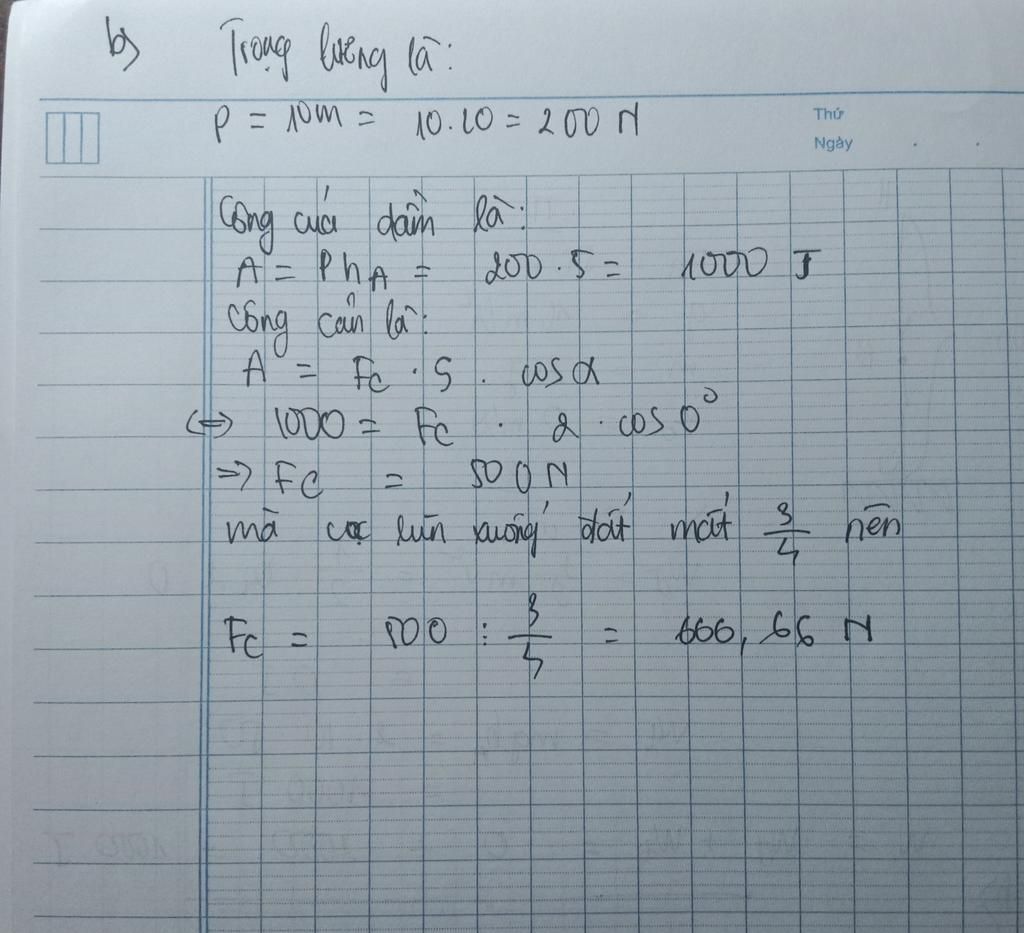 b) Trọng lượng là:
P = 10m = 10.20 = 200 N
Thứ
Ngày
Công của dầm là:
A = P h_A = 200 . 5 = 1000 J
Công cản là:
A = Fc . S . cos α
<=> 1000 = Fc . 2 . cos 0°
=> Fc = 500 N
mà cọc lún xuống đất mất 3/4 nên
Fc = 500 : 3/4 = 666,66 N